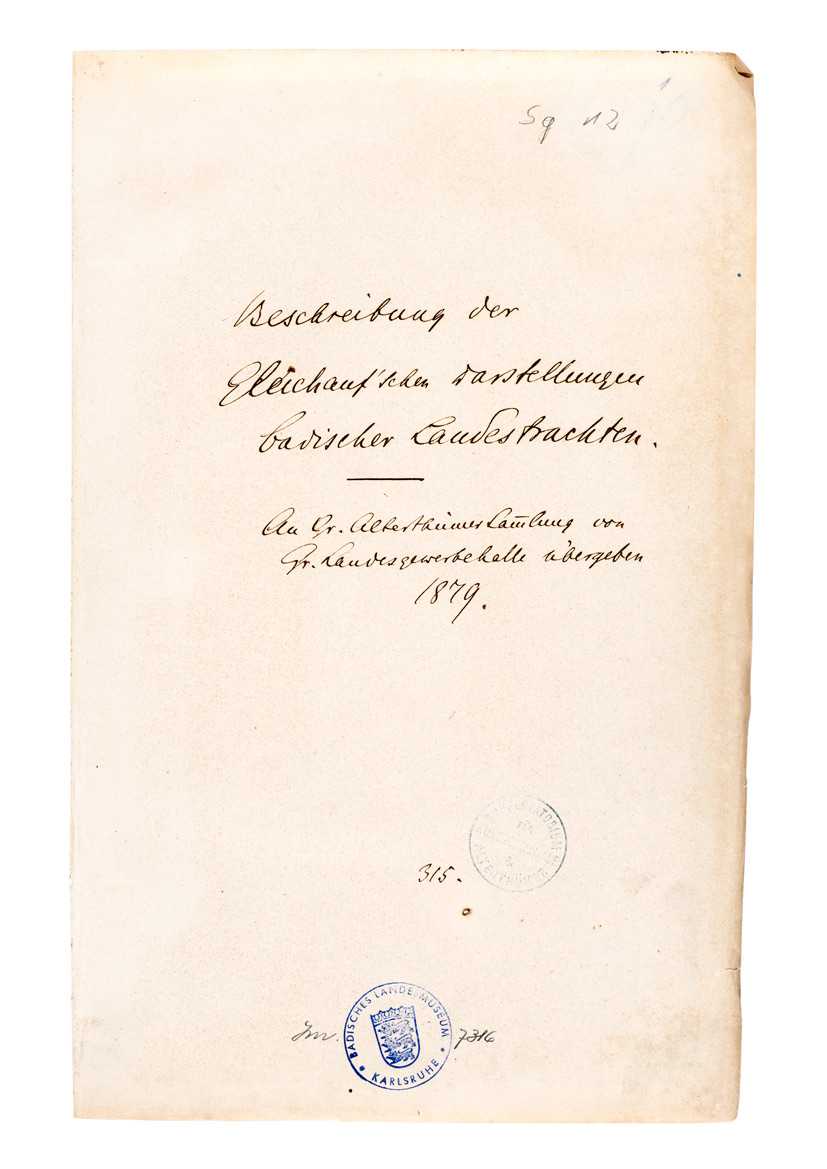 Sg 12
Beschreibung der
Gleichauf'schen Darstellungen
badischer Landestrachten.
An Gr. Alterthümersam̅lung von
Gr. Landesgewerbehalle übergeben
1879.
CONSERVATORIUM
ALTERTHÜMER
315.
BADISCHES LANDESMUSEUM
KARLSRUHE
7316